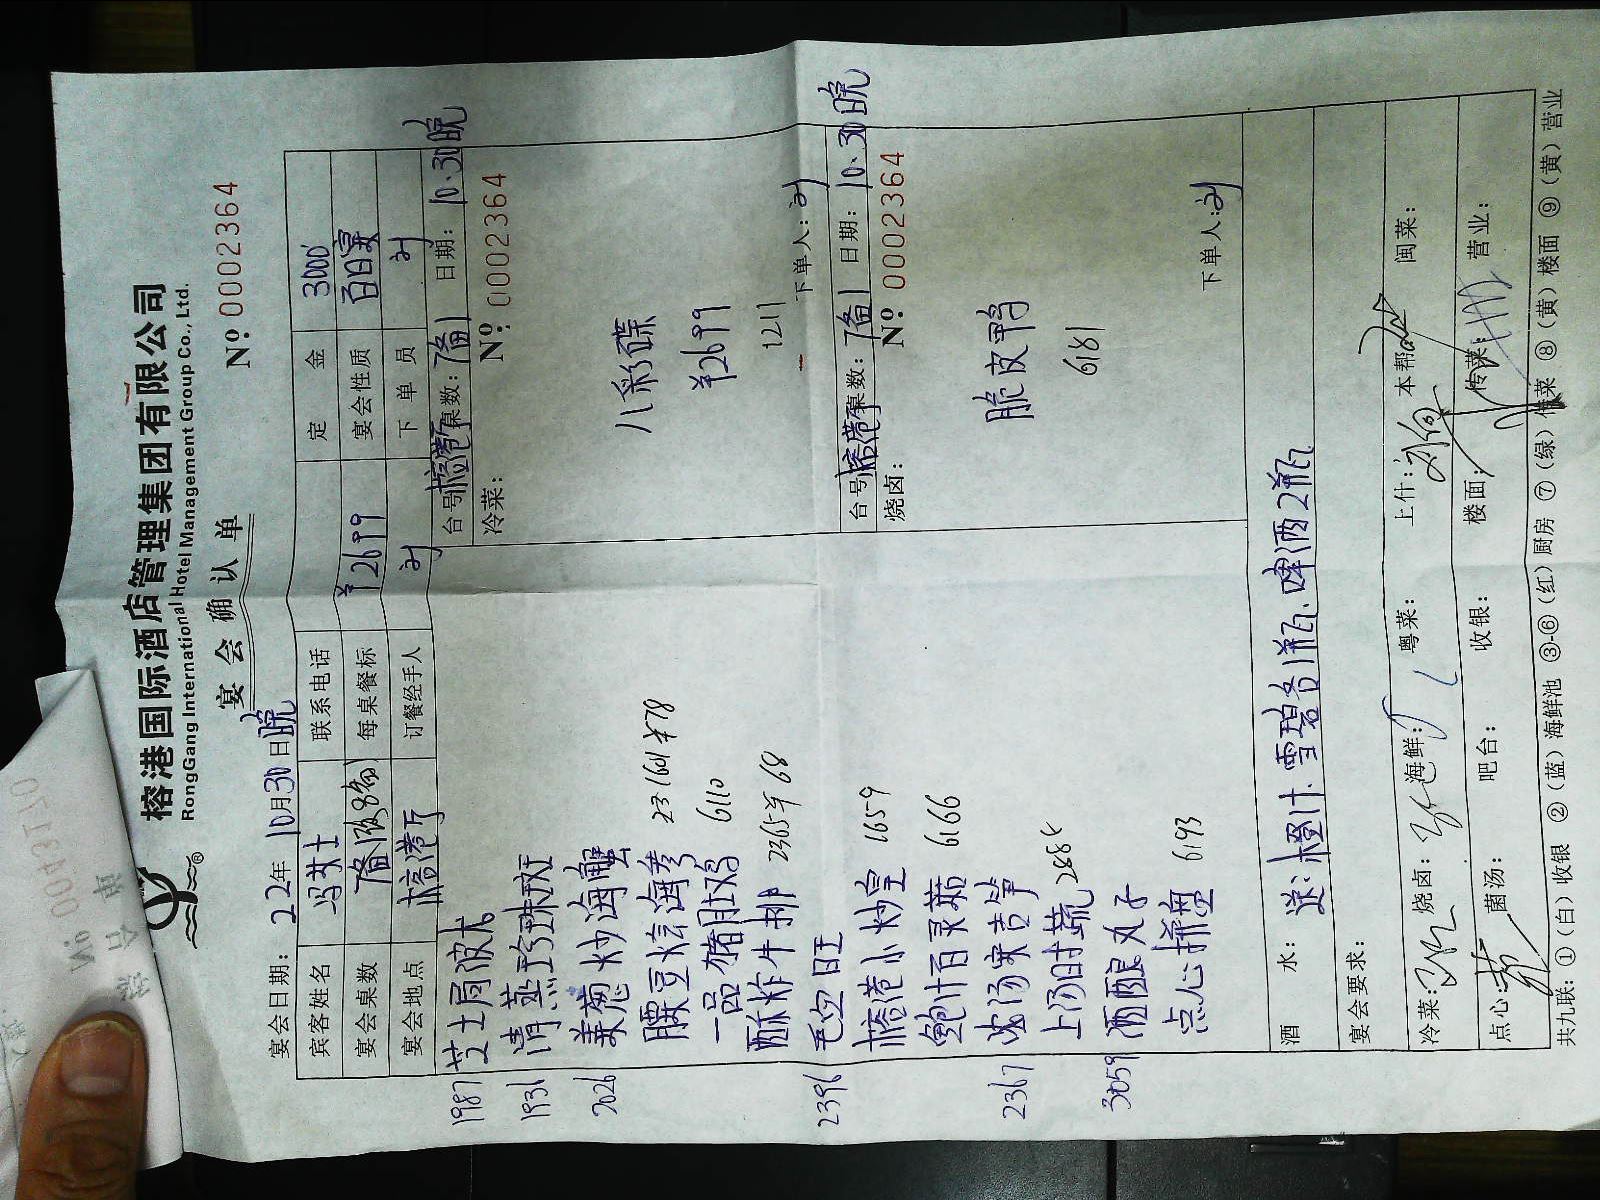 榕港国际酒店管理集团有限公司
RongGang International Hotel Management Group Co., Ltd.
宴会确认单
宴会日期：22年10月30日晚 Nº 0002364
宾客姓名 冯女士 联系电话 定金 3000
宴会桌数 7备1 每桌餐标 ¥2699 宴会性质 百日宴
宴会地点 榕港厅 订餐经手人 下单员
1987 芝士焗波龙
1936 清蒸珍珠斑
2026 姜葱炒海蟹
腰豆烩海参 23160 ¥78
一品猪肚鸡 6110
酥炸牛排 2365 ¥68
2396 毛血旺
榕港小炒皇 1659
鲍汁百灵菇 6166
2367 浓汤寒吉笋
上汤时蔬
3059 酒酿丸子
点心拼盘 6193
台号 榕港厅 桌数：7备1 日期：10.30晚
冷菜： Nº 0002364
八彩碟
¥2699
1211
下单人：
台号 榕港厅 桌数：7备1 日期：10.30晚
烧卤： Nº 0002364
脆皮鸭
6181
下单人：
酒水： 送：橙汁、雪碧各1瓶、啤酒2瓶
宴会要求：
冷菜： 烧卤： 海鲜： 粤菜： 上什： 本帮： 闽菜：
点心： 菌汤： 吧台： 收银： 楼面： 传菜： 营业：
共九联：①（白）收银 ②（蓝）海鲜池 ③-⑥（红）厨房 ⑦（绿）传菜 ⑧（黄）楼面 ⑨（黄）营业